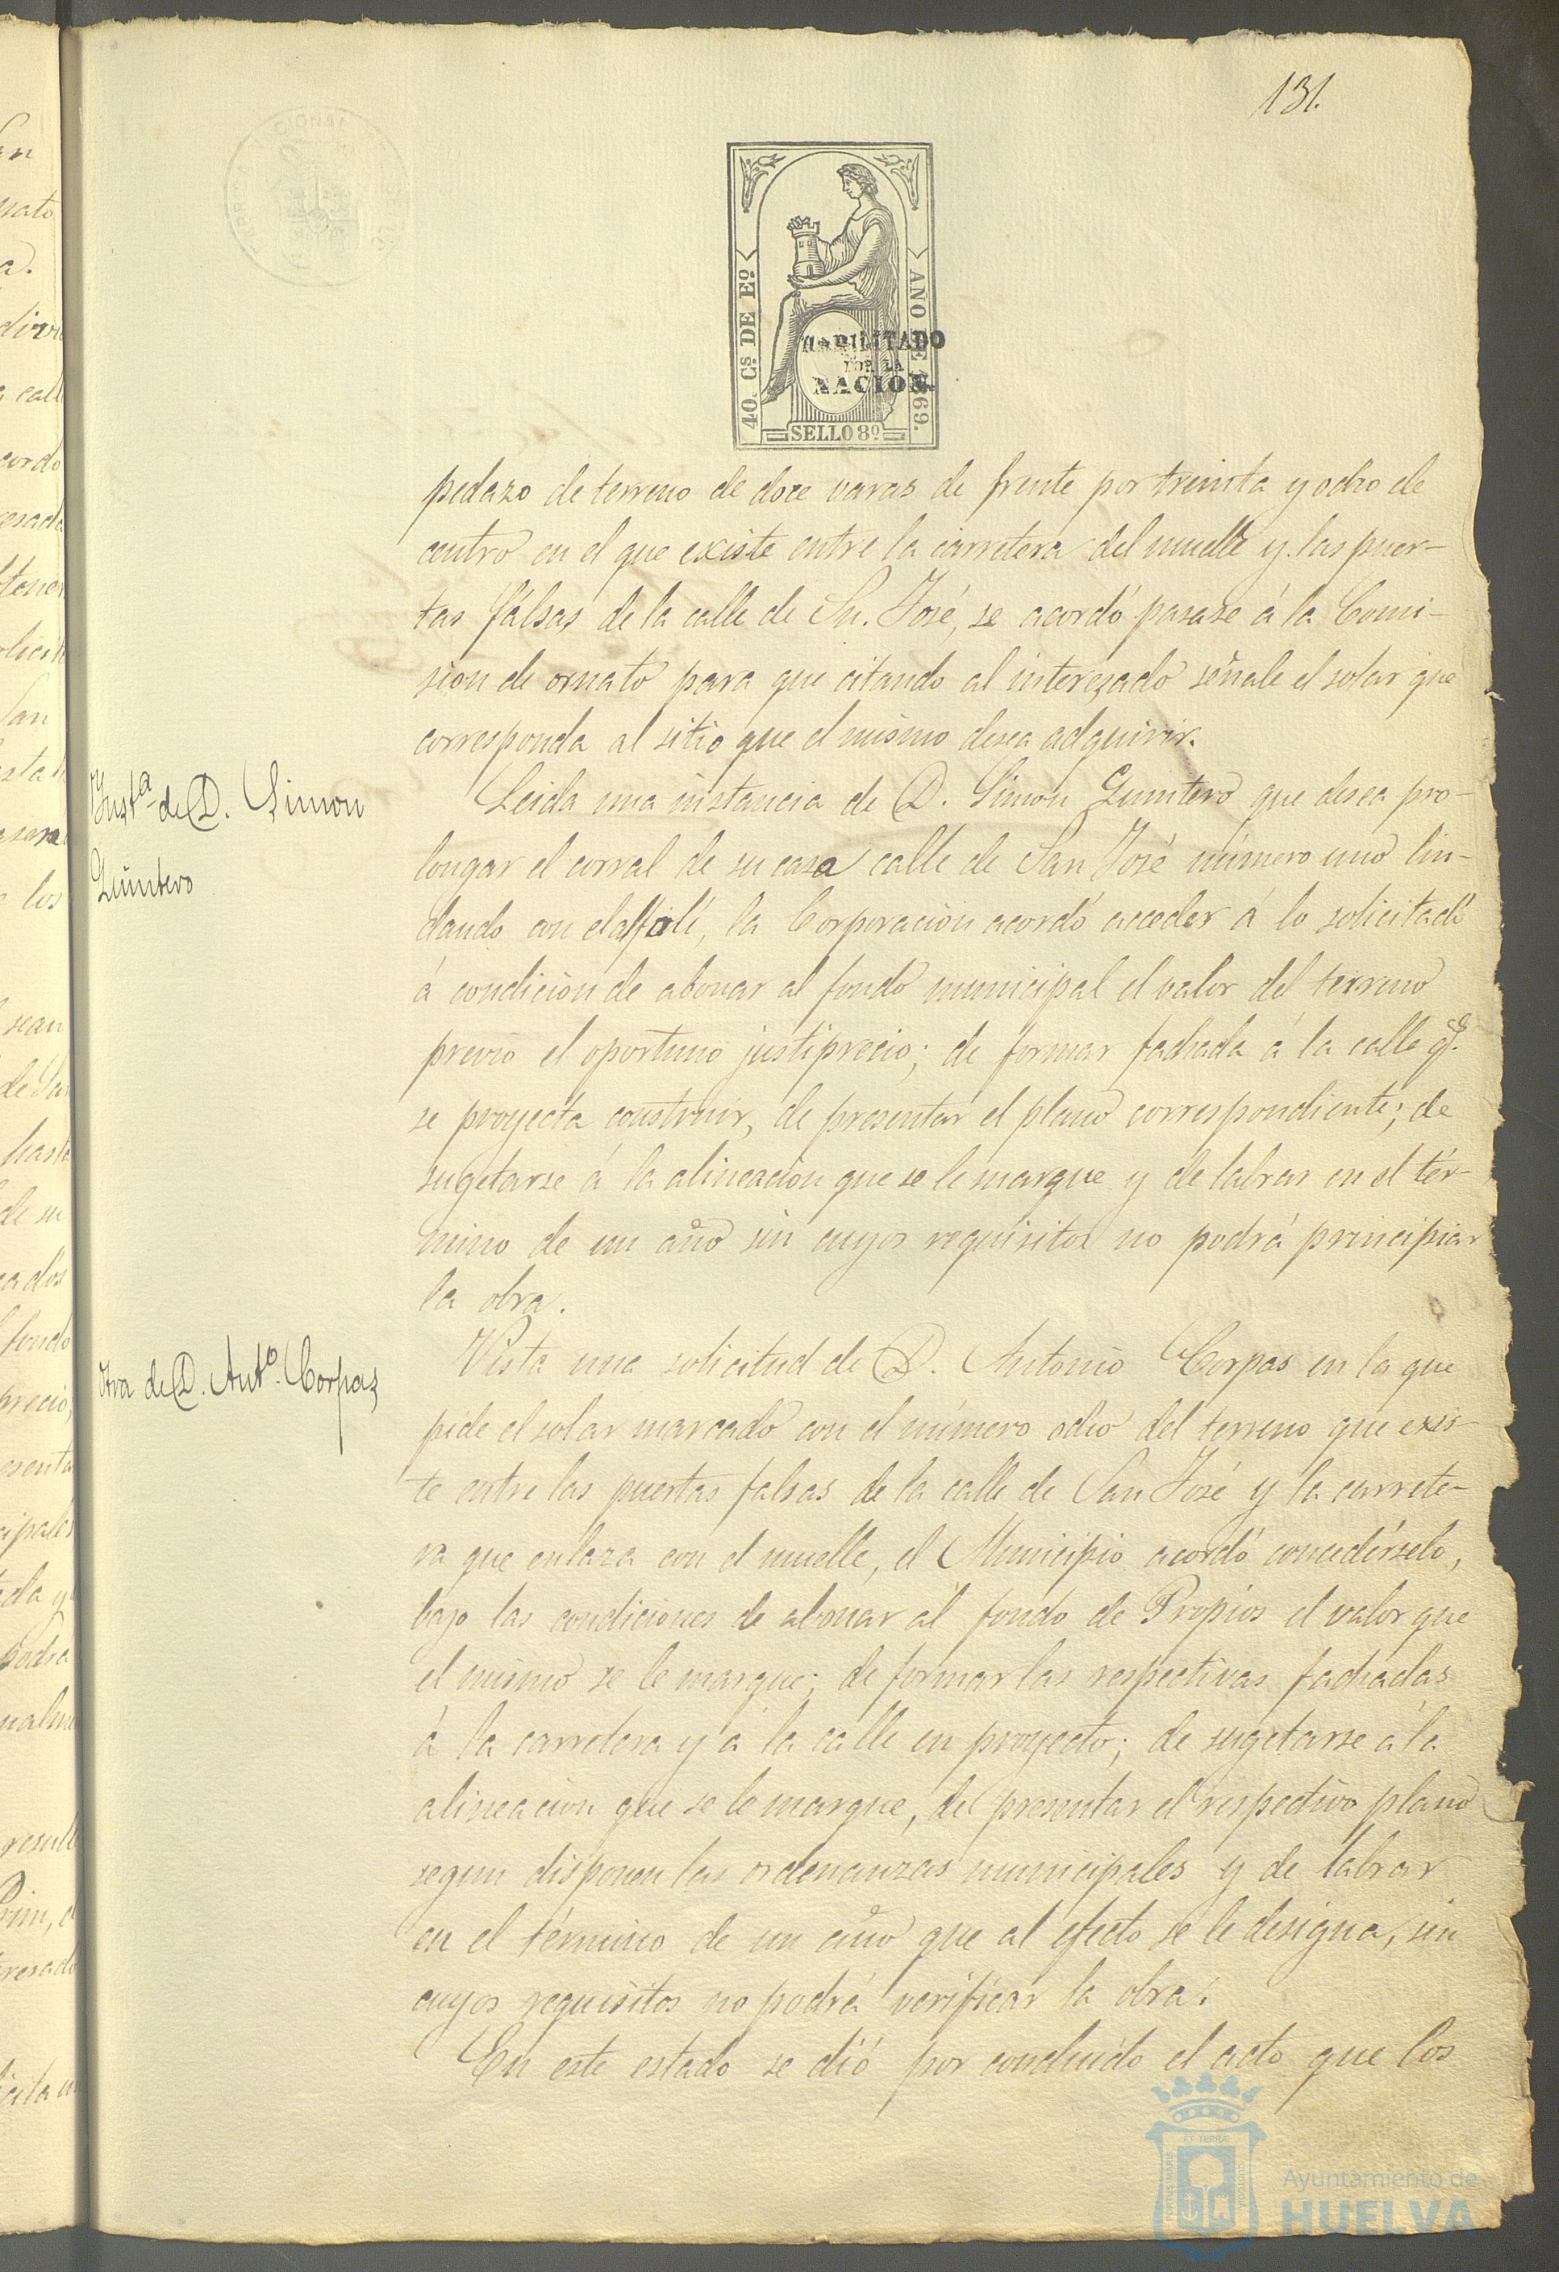 131.
40. Cs DE Eo
AÑO DE 1869.
HABILITADO
POR LA
NACION.
SELLO 8o
pedazo de terreno de doce varas de frente por treinta y ocho de
centro en el que existe entre la carretera del muelle y las puer-
tas fálsas de la calle de Sn. José, se acordó pasase á la Comi-
sion de ornato para que citando al interezado señale el solar que
corresponda al sitio que el mismo desea adquirir.
Insta. de D. Simon
Quintero
Leida una instancia de D. Simon Quintero que desea pro-
longar el corral de su casa calle de San José número uno lin-
dando con el alfolí, la Corporacion acordó acceder á lo solicitado
á condicion de abonar al fondo municipal el valor del terreno
previo el oportuno justiprecio; de formar fachada á la calle qe.
se proyecta construir, de presentar el plano correspondiente; de
sugetarse á la alineacion que se le marque y de labrar en el tér-
mino de un año sin cuyos requisitos no podrá principiar
la obra.
Otra de D. Anto. Corpas
Vista una solicitud de D. Antonio Corpas en la que
pide el solar marcado con el número ocho del terreno que exis-
te entre las puertas falsas de la calle de San José y la carrete-
ra que enlaza con el muelle, el Municipio acordó concedérselo,
bajo las condiciones de abonar al fondo de Propios el valor que
el mismo se le marque; de formar las respectivas fachadas
á la carretera y á la calle en proyecto; de sugetarse á la
alineacion que se le marque, de presentar el respectivo plano
segun disponen las ordenanzas municipales y de labrar
en el término de un año que al efecto se le designa, sin
cuyos requisitos no podrá verificar la obra.
En este estado se dió por concluido el acto que los
Ayuntamiento de
HUELVA